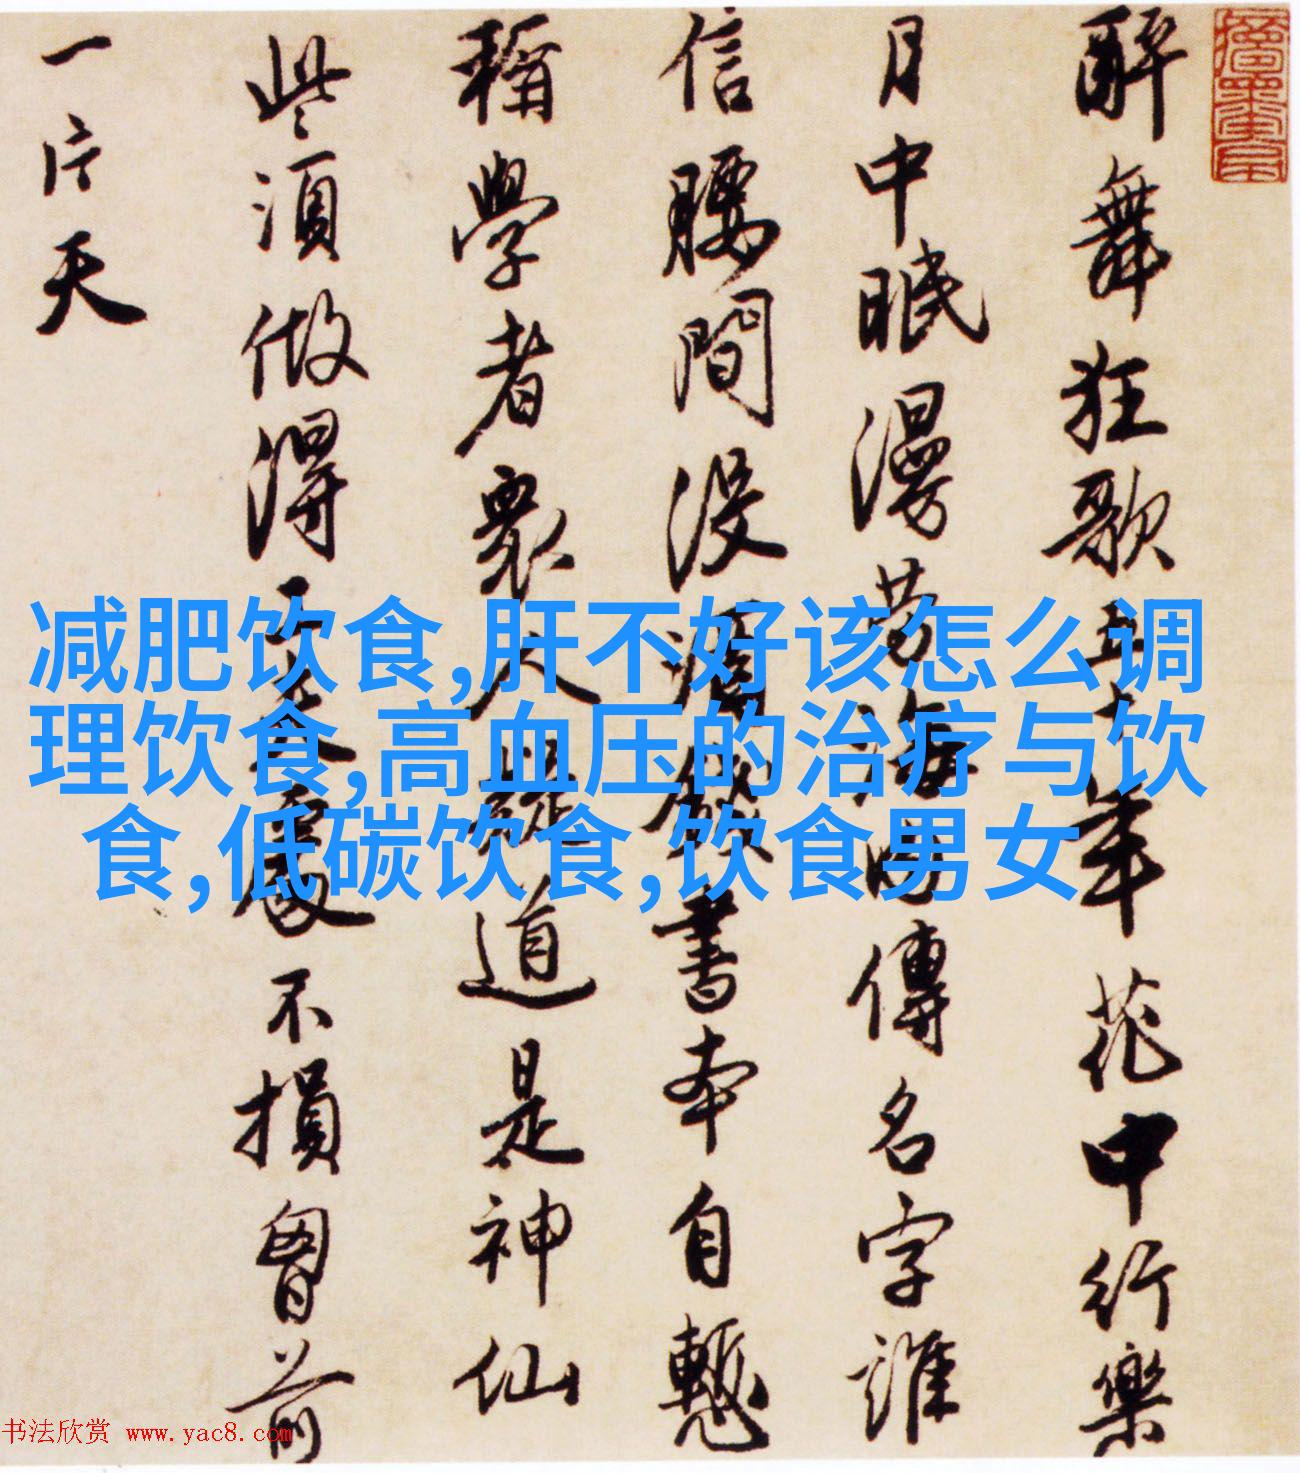 酔舞狂歌五十年花中行樂
月中眠漫劳海内傳名字誰
信腰間没酒錢書本自慙
稱學者衆人疑道是神仙
些湏做得工夫處不損胷前
一片天
减肥饮食,肝不好该怎么调
理饮食,高血压的治疗与饮
食,低碳饮食,饮食男女
书法欣赏 www.yac8.com